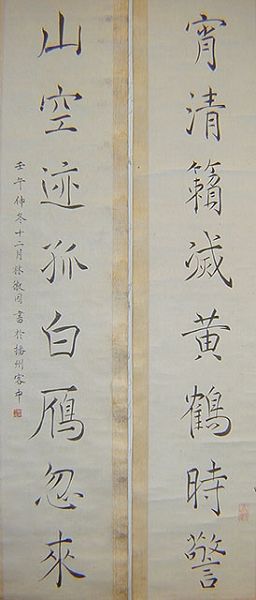 宵清籟滅黄鶴時警
山空迹孤白鴈忽來
壬午仲冬十二月林散周書於揚州客中